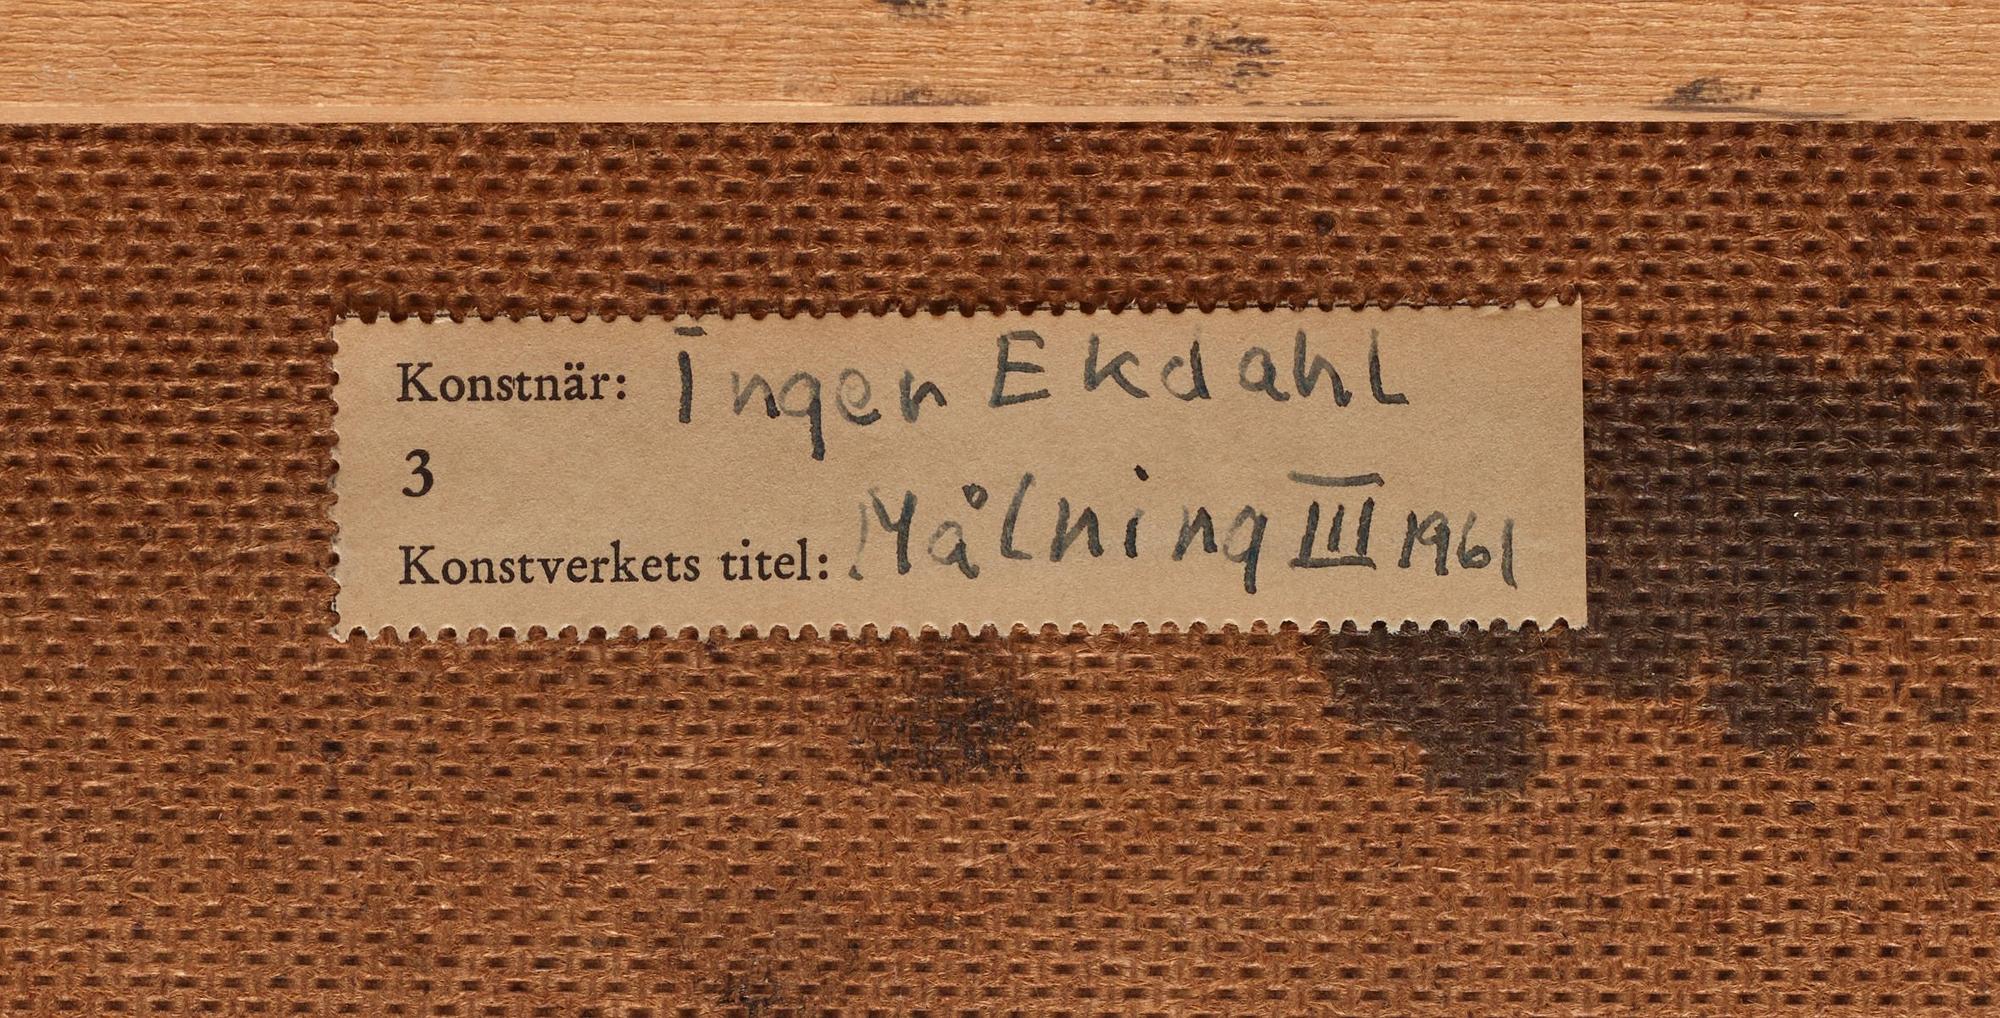 Konstnär: Inger Ekdahl
3
Konstverkets titel: Målning III 1961